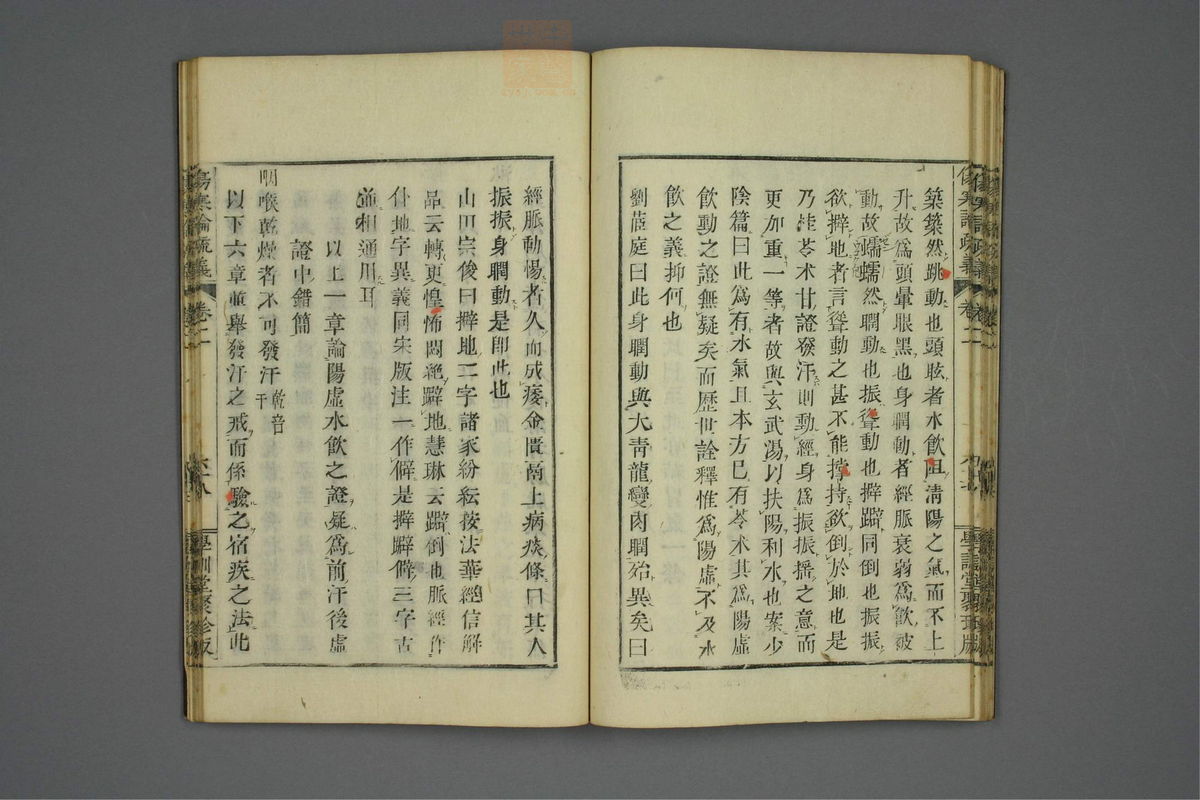 築築然跳動也頭眩者水飲阻淸陽之氣而不上
升故爲頭暈眼黑也身瞤動者經脈衰弱爲飲被
動故蠕蠕然瞤動也振聳動也擗躃同倒也振振
欲擗地者言聳動之甚不能撑持欲倒於地也是
乃桂苓术甘證發汗則動經身爲振振搖之意而
更加重一等者故與玄武湯以扶陽利水也案少
陰篇曰此爲有水氣且本方已有苓术其爲陽虛
飲動之證無疑矣而歷世詮釋惟爲陽虛不及水
飲之義抑何也
劉茝庭曰此身瞤動與大靑龍變肉瞤殆異矣曰
經脈動惕者久而成痿金匱鬲上病痰條曰其人
振振身瞤動是卽此也
山田宗俊曰擗地二字諸家紛紜按法華經信解
品云轉更惶怖悶絕躃地慧琳云躃倒也脈經作
仆地字異義同宋版注一作僻是擗躃僻三字古
並相通用耳
以上一章論陽虛水飲之證疑爲前汗後虛
證中錯簡
咽喉乾燥者不可發汗 乾音
干
以下六章並舉發汗之戒而係驗之宿疾之法此
傷寒論疏義 卷二
學訓堂聚珍版